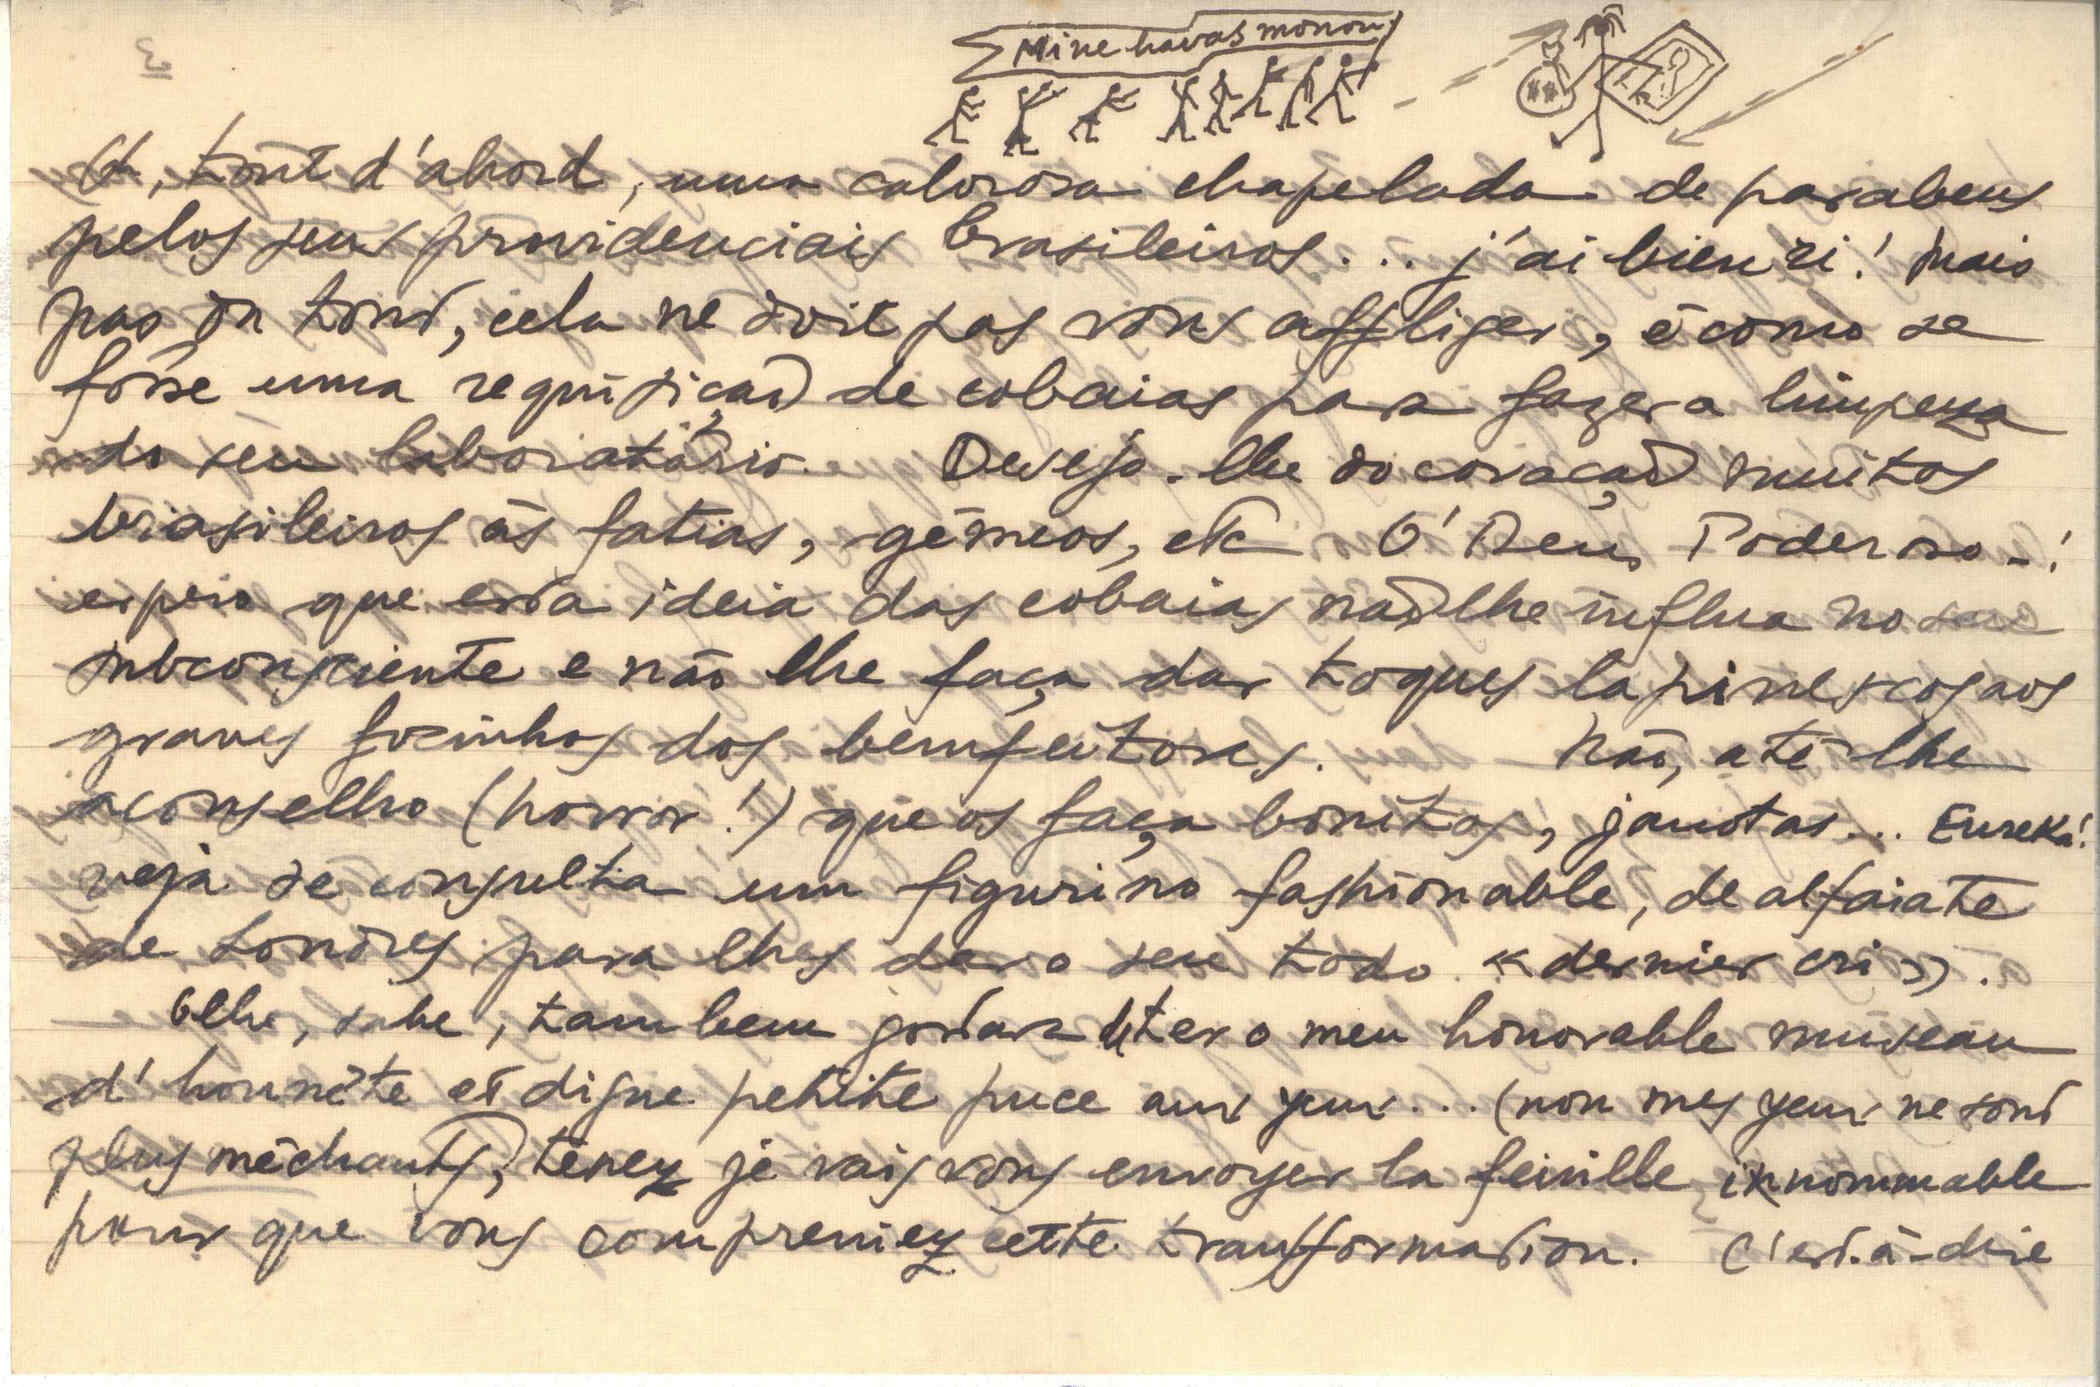 Mi ne havas monon!
Et, tout d'abord, uma calorosa chapelada de parabens
pelos seus providenciais brasileiros... j'ai bien ri! Mais
pas du tout, cela ne doit pas vous affliger, é como se
fôsse uma requisição de cobaias para fazer a limpeza
do seu laboratório. Desejo-lhe do coração muitos
brasileiros às fatias, gémeos, etc Ó Deus Poderoso-!
espero que esta ideia das cobaias não lhe influa no seu
subconsciente e não lhe faça dar toques lapinescos aos
graves focinhos dos bemfeitores. Não, até lhe
aconselho (horror!) que os faça bonitos, janotas... Eureka!
veja se consulta um figurino fashionable, de alfaiate
de Londres para lhes dar o seu todo «dernier cri».
Olhe, sabe, tambem gostava de ter o meu honorable museau
d'honnête et digne petite puce aux yeux... (non mes yeux ne sont
plus méchants), tenez je vais vous envoyer la feuille innommable
pour que vous compreniez cette transformation. C'est-à-dire